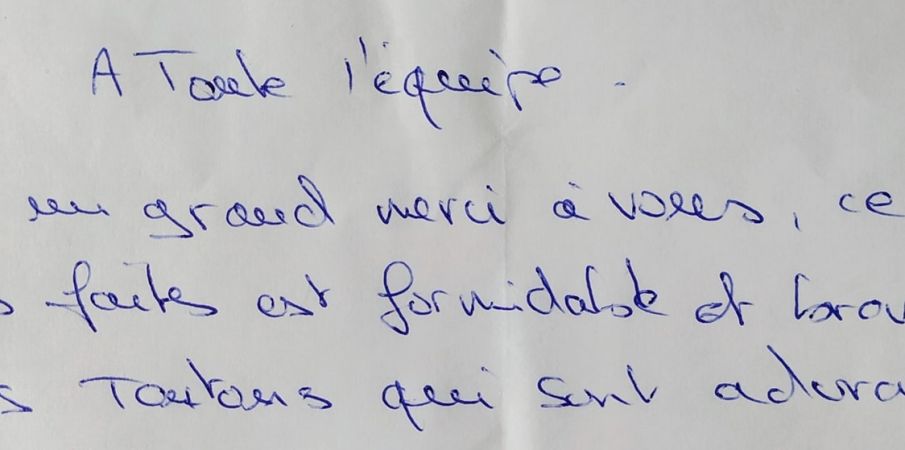 A Toute l'équipe.
un grand merci à vous, ce
s faites est formidable et brav
s Toutous qui sont adora